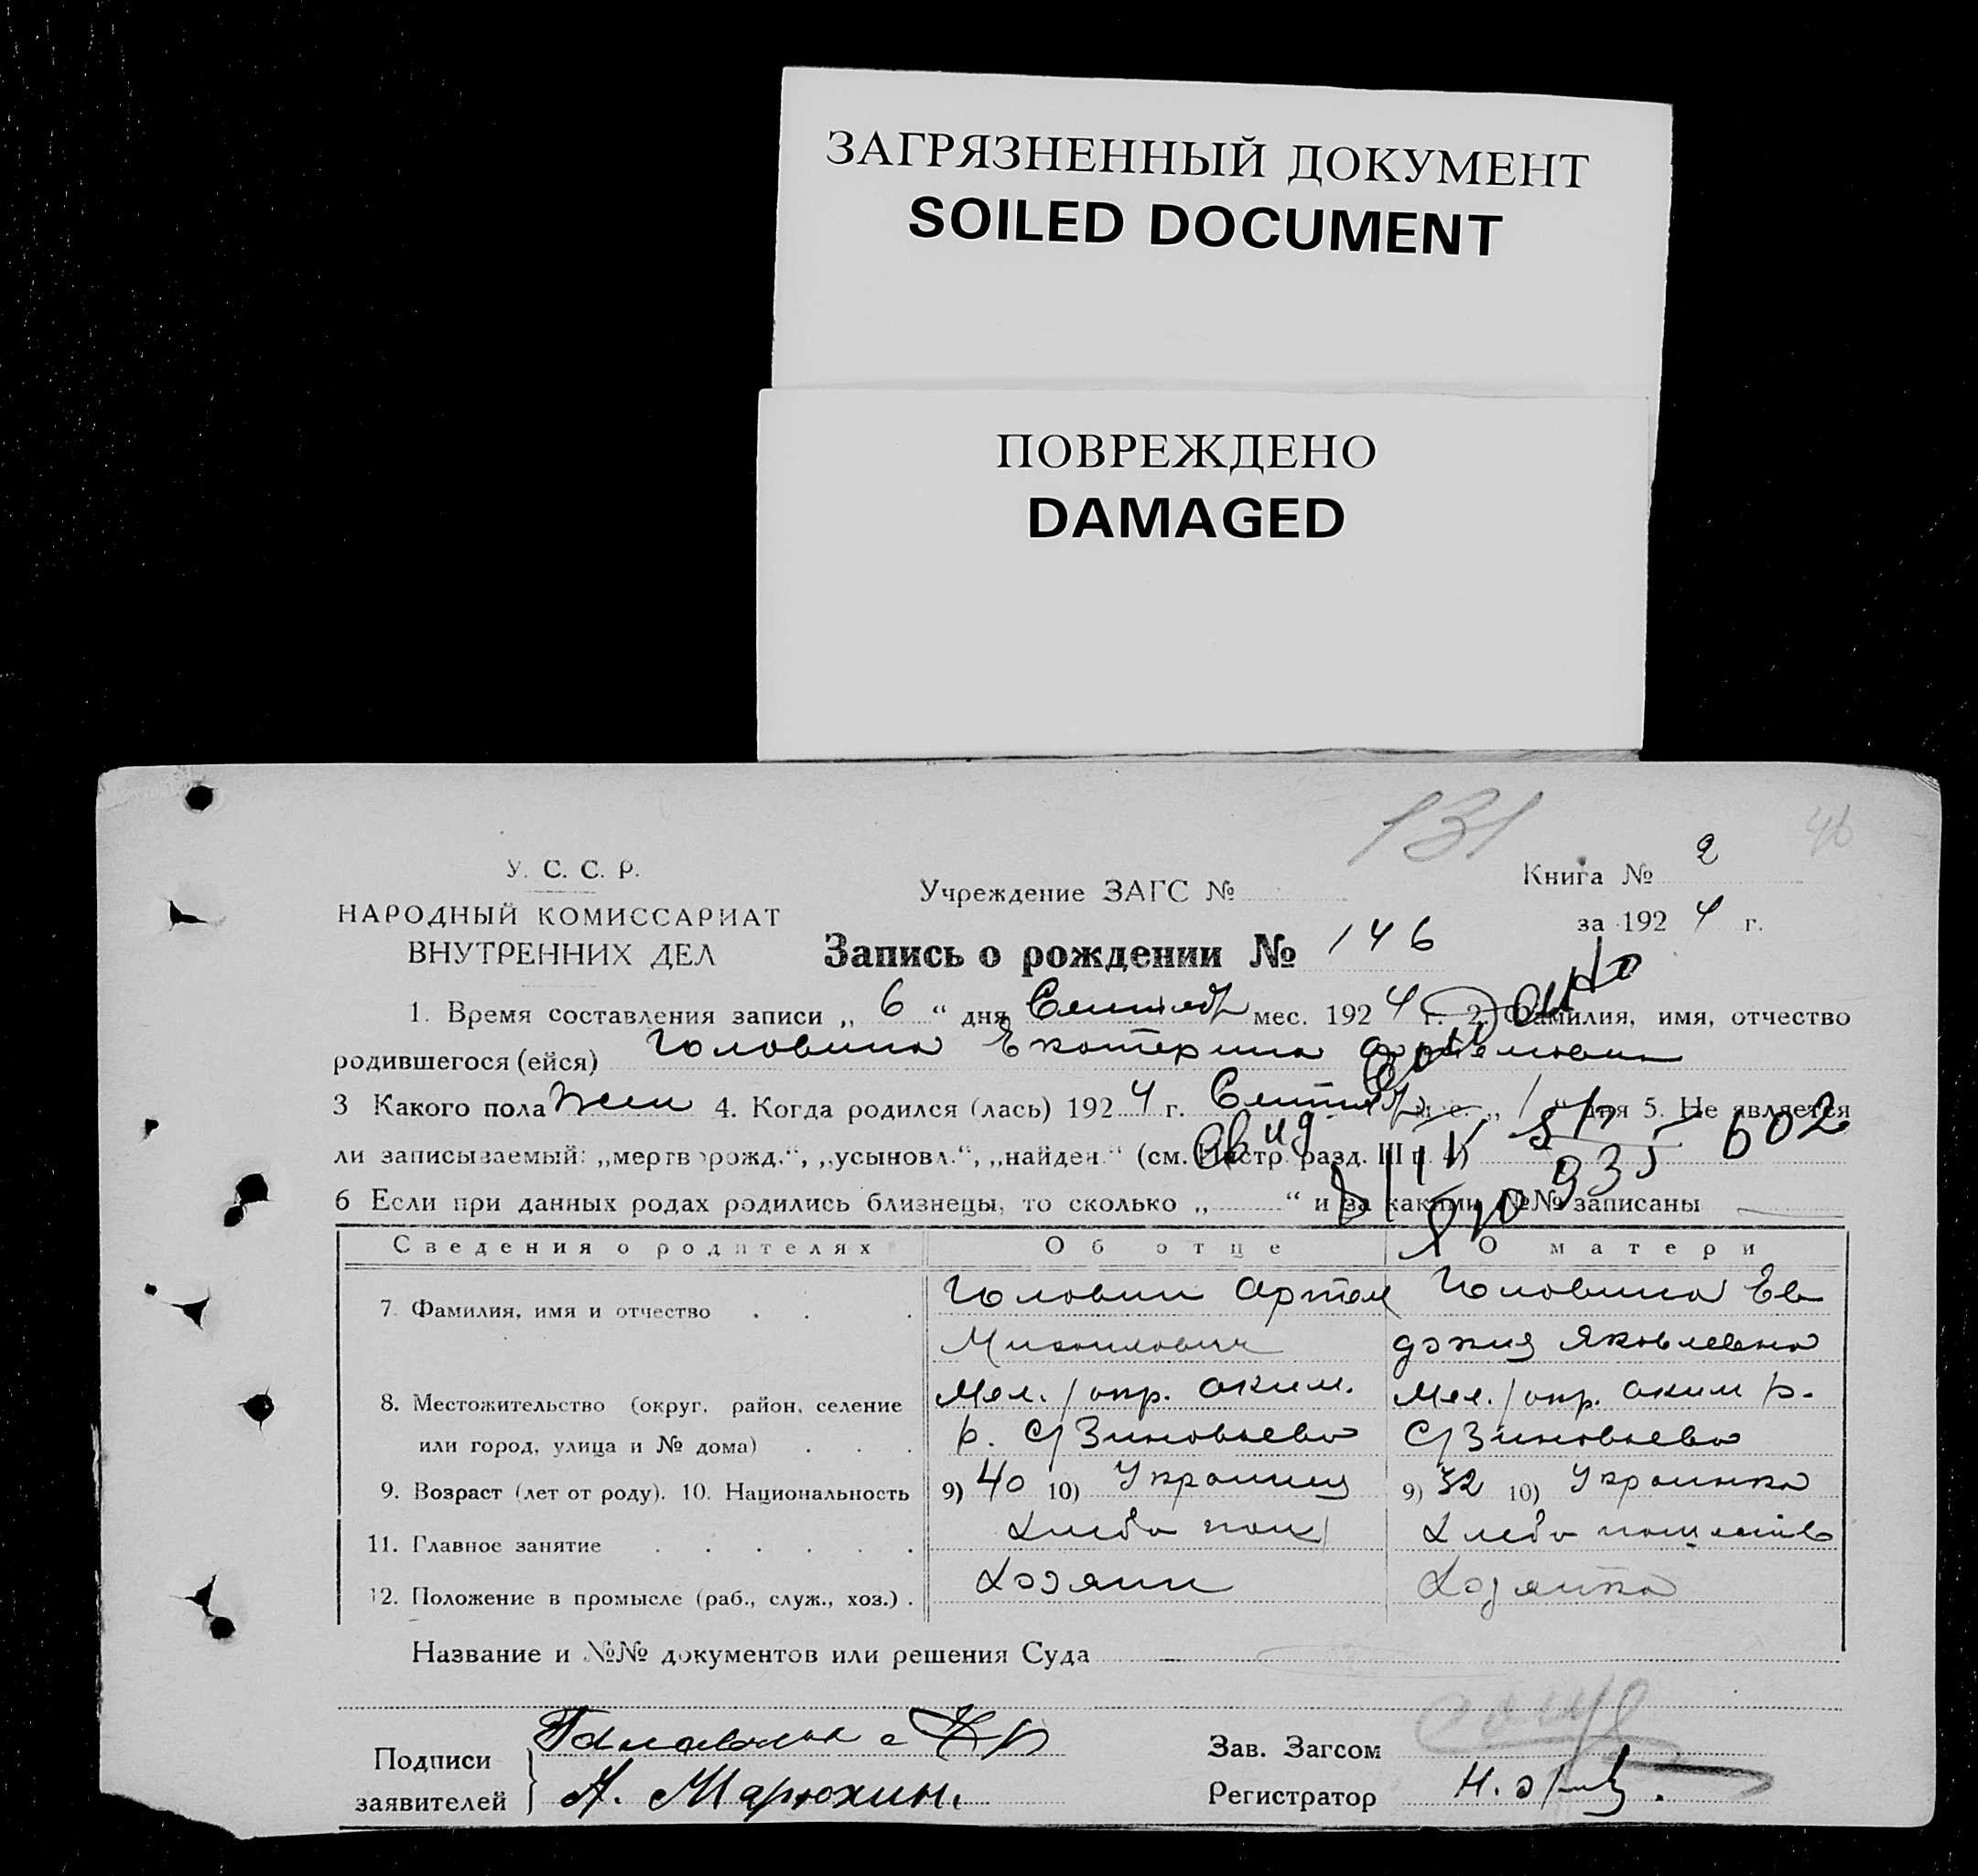 ЗАГРЯЗНЕННЫЙ ДОКУМЕНТ
SOILED DOCUMENT
ПОВРЕЖДЕНО
DAMAGED
131
46
У. С. С. Р.
НАРОДНЫЙ КОМИССАРИАТ
ВНУТРЕННИХ ДЕЛ
Учреждение ЗАГС №
Книга № 2
за 1924 г.
Запись о рождении № 146
1. Время составления записи „ 6 “ дня Сентябр мес. 1924 г. 2. Фамилия, имя, отчество
родившегося (ейся) Головина Екатерина Артемовна
3 Какого пола жен 4. Когда родился (лась) 1924 г. Сентябр мес. „ 1 “ дня 5. Не является
ли записываемый: „мертворожд.“, „усыновл.“, „найден.“ (см. Инстр. разд. III п. 4)
602
935
6 Если при данных родах родились близнецы, то сколько „ “ и за какими №№ записаны
Сведения о родителях Об отце О матери
7. Фамилия, имя и отчество Головин Артем Головина Ев
Михайлович докия Яковлевна
8. Местожительство (округ, район, селение Мел./окр. Аким. Мел./окр. Аким р.
или город, улица и № дома) р. С/Зиновьево С/Зиновьево
9. Возраст (лет от роду). 10. Национальность 9) 40 10) Украинец 9) 32 10) Украинка
11. Главное занятие Хлебопаш Хлебопашеств
12. Положение в промысле (раб., служ., хоз.) . Хозяин Хозяйка
Название и №№ документов или решения Суда
Подписи
заявителей
А. Марюхин.
Зав. Загсом
Регистратор